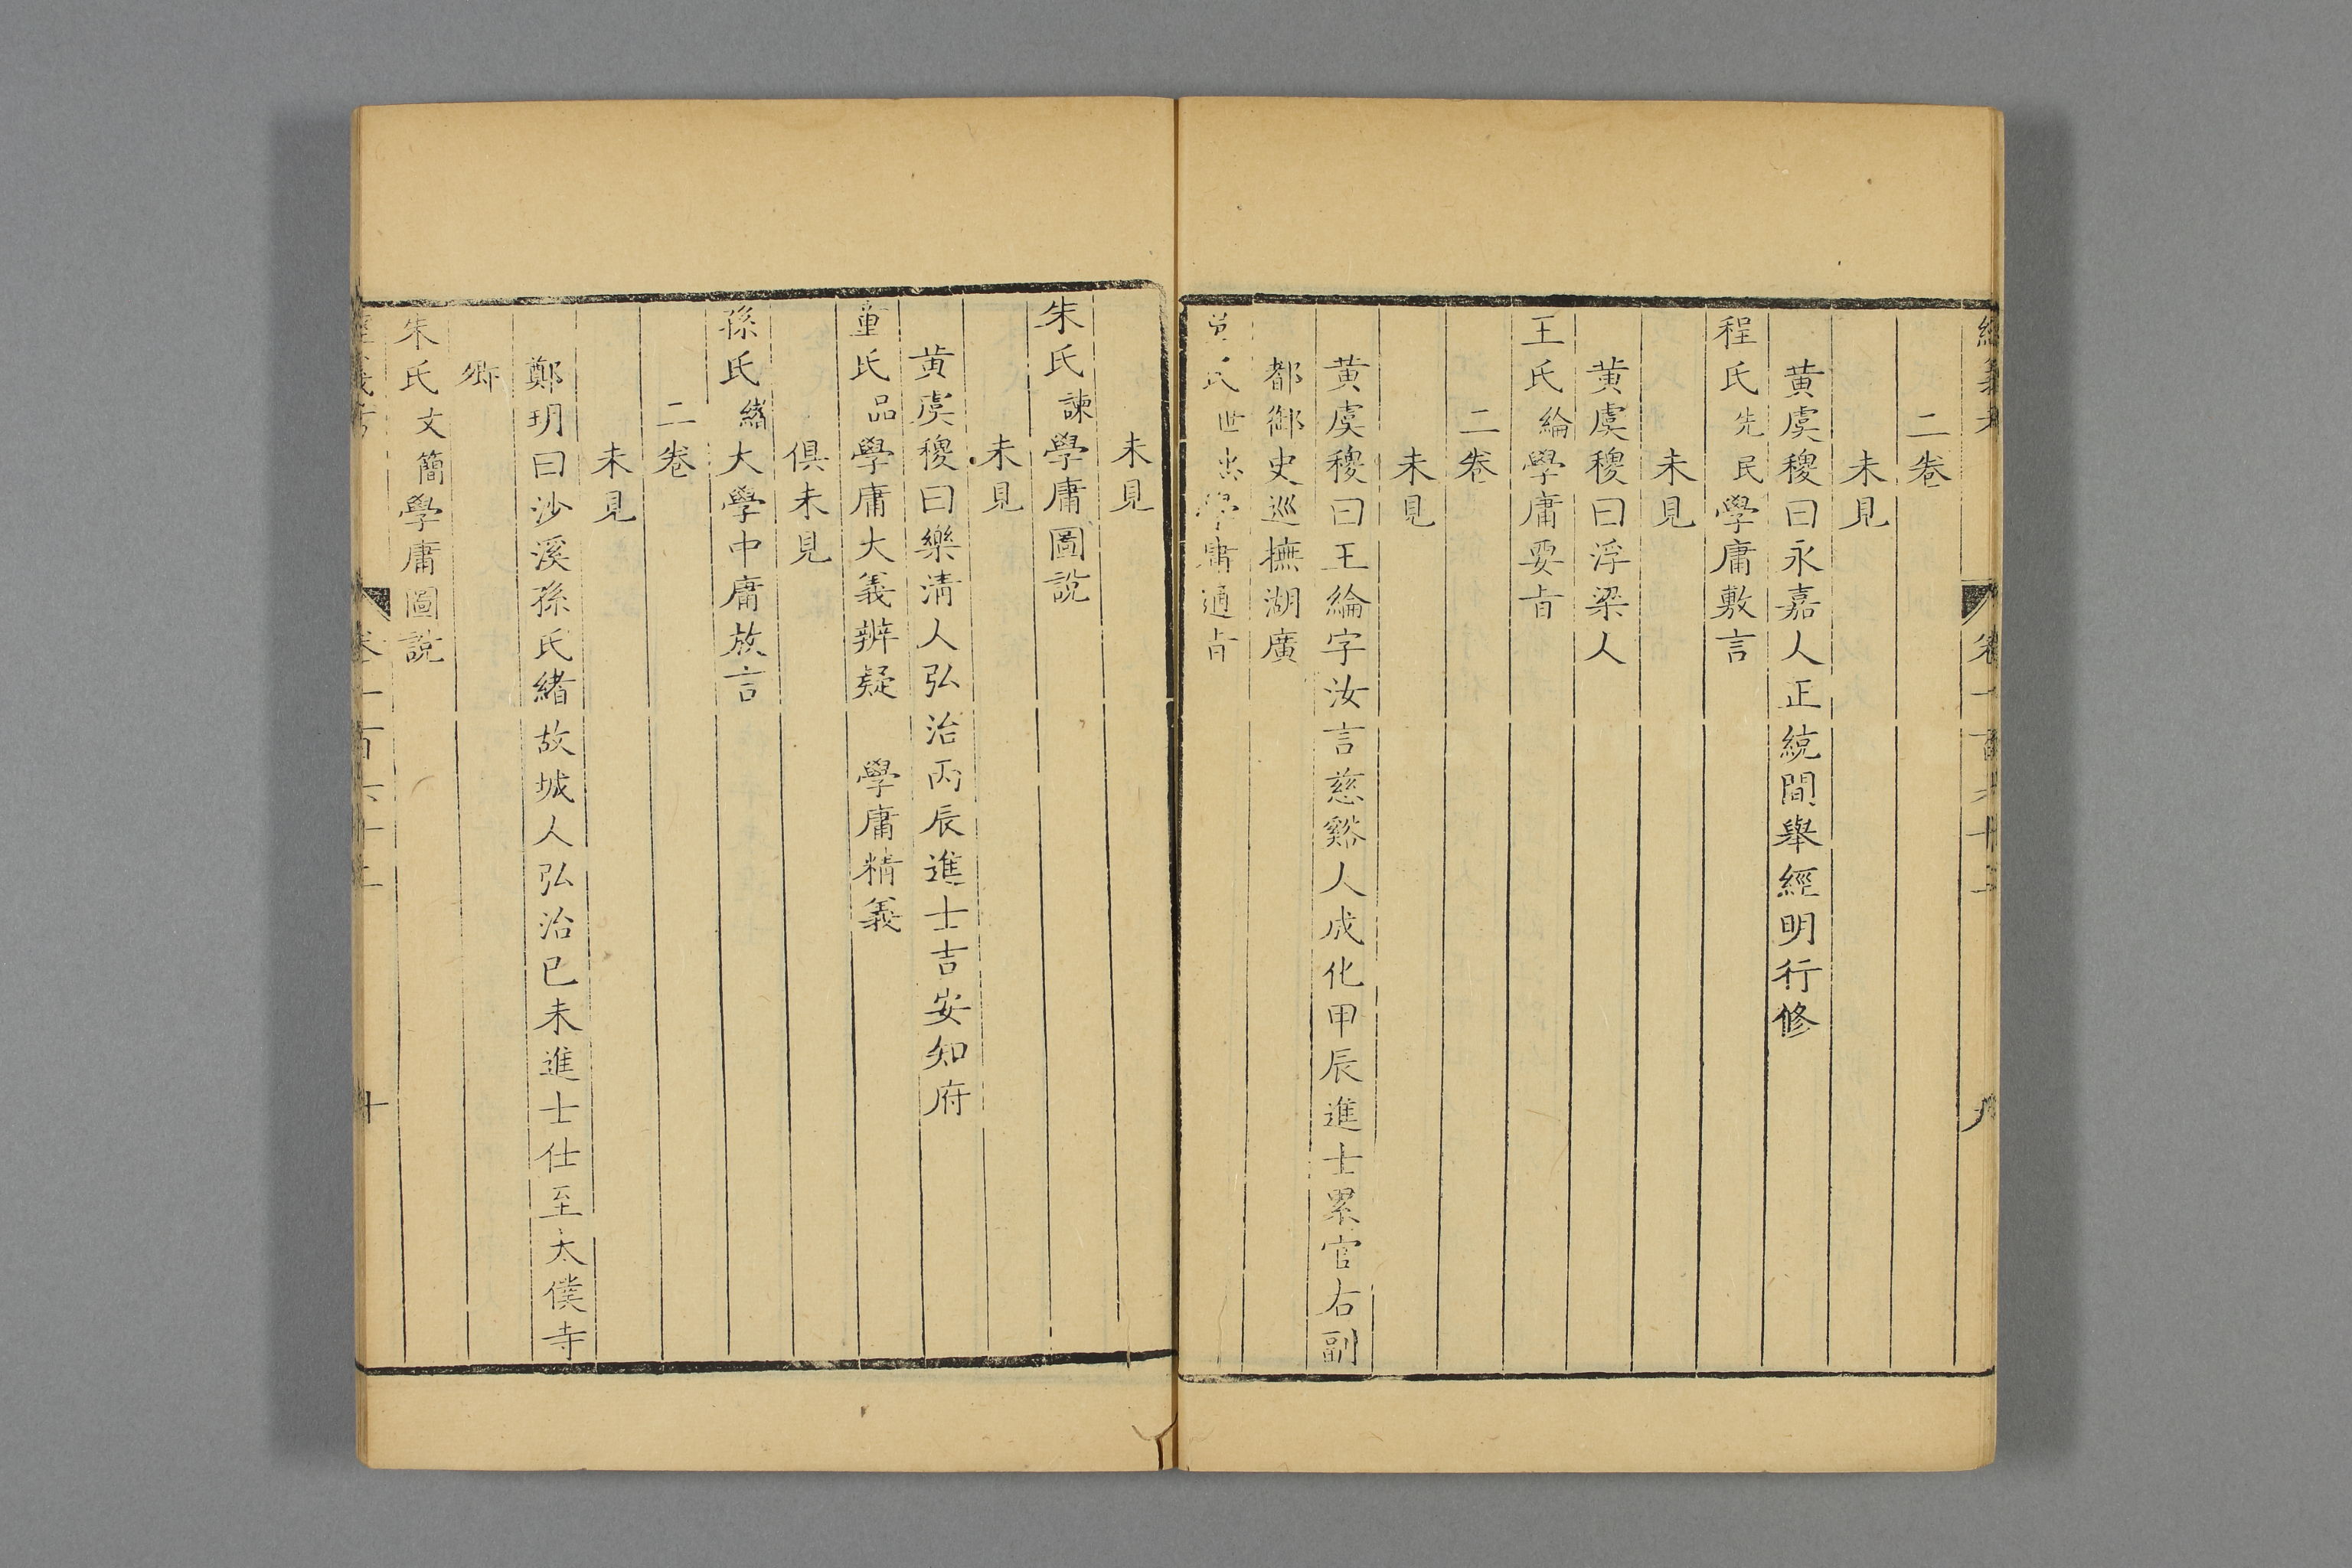 經義考 卷一百六十三 九
二卷
未見
黄虞稷曰永嘉人正統間舉經明行修
程氏先民學庸敷言
未見
黄虞稷曰浮梁人
王氏綸學庸要旨
二卷
未見
黄虞稷曰王綸字汝言慈谿人成化甲辰進士累官右副
都御史巡撫湖廣
氏世忠學庸通旨
未見
朱氏諫學庸圖說
未見
黄虞稷曰樂清人弘治丙辰進士吉安知府
童氏品學庸大義辨疑 學庸精義
俱未見
孫氏緒大學中庸放言
二卷
未見
鄭玥曰沙溪孫氏緒故城人弘治已未進士仕至太僕寺
卿
朱氏文簡學庸圖說
經義考 卷一百六十三 十